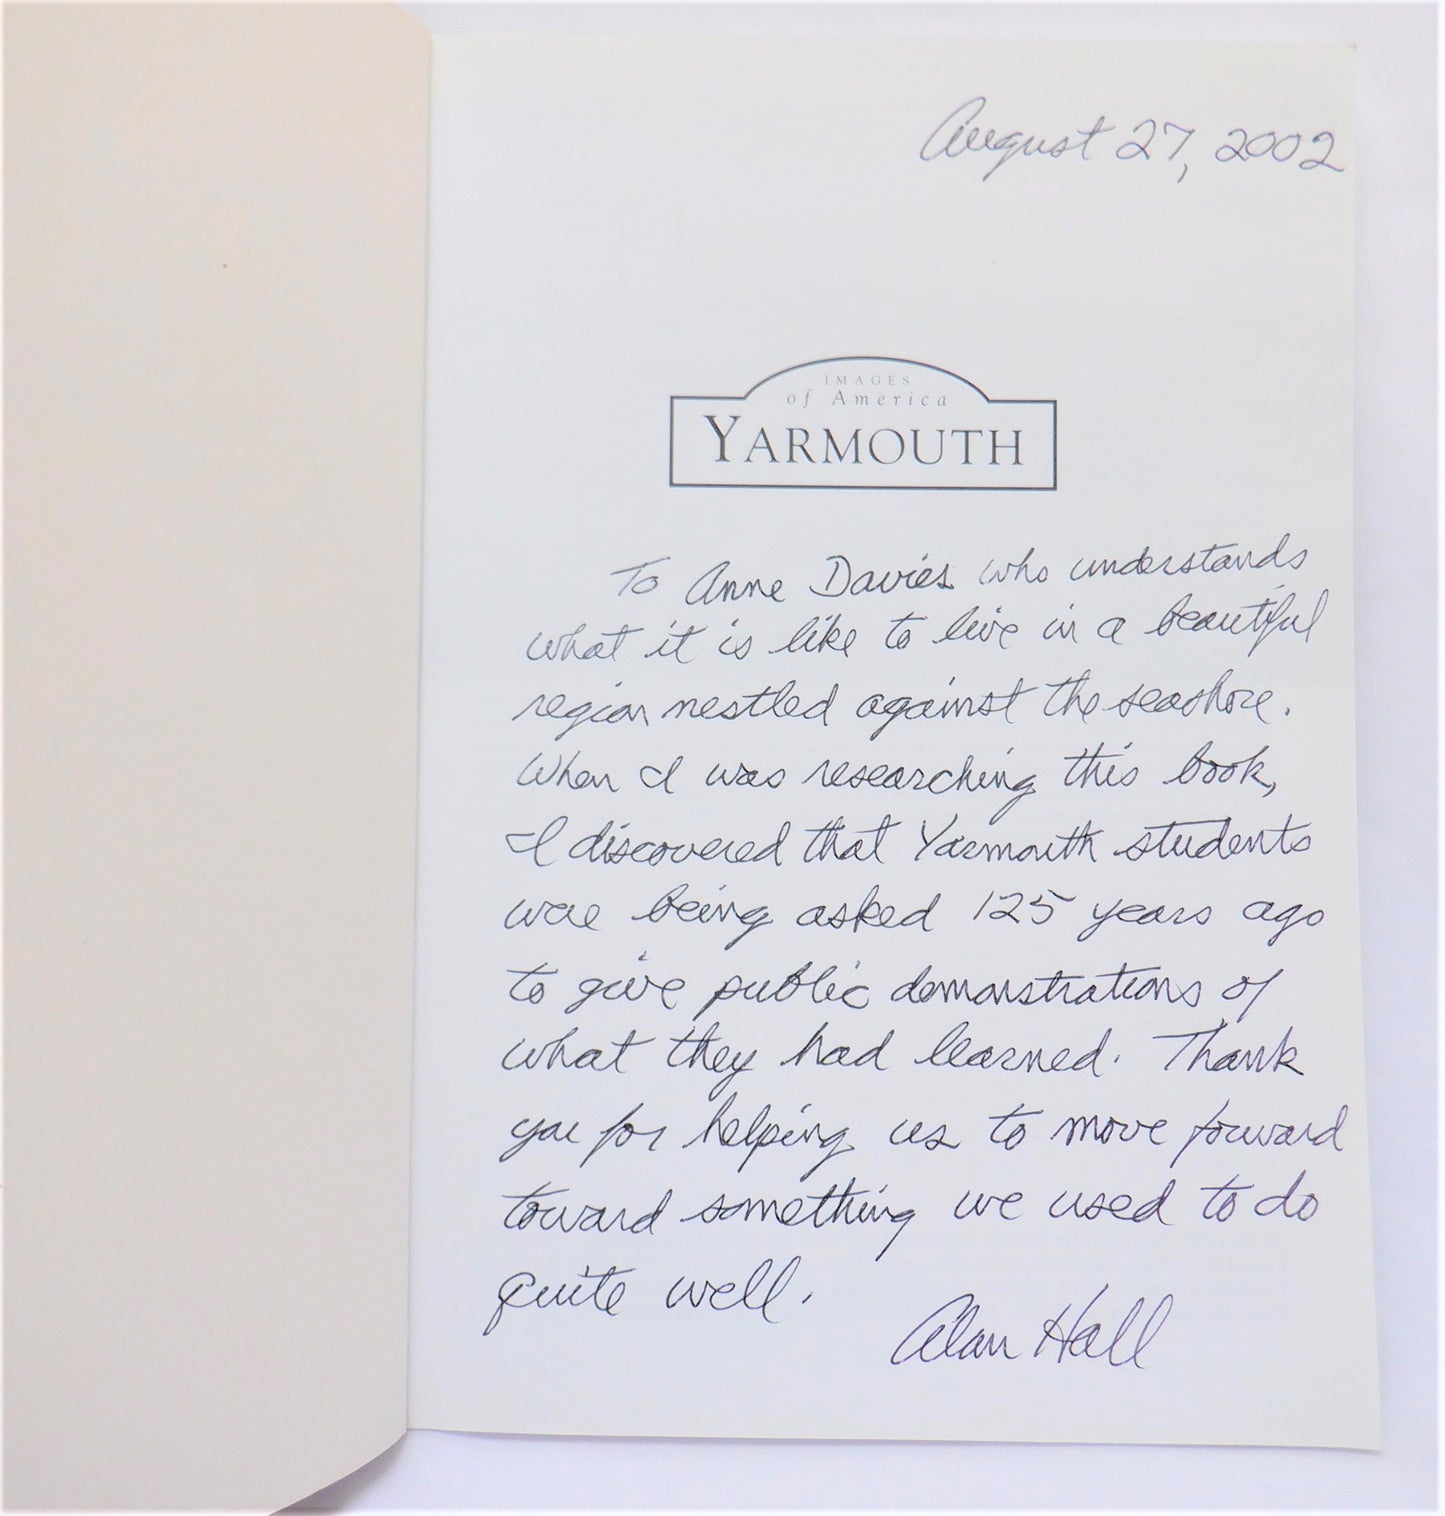 August 27, 2002
IMAGES
of America
YARMOUTH
To Anne Davies who understands
what it is like to live in a beautiful
region nestled against the seashore.
When I was researching this book,
I discovered that Yarmouth students
were being asked 125 years ago
to give public demonstrations of
what they had learned. Thank
you for helping us to move forward
toward something we used to do
quite well.
Alan Hall